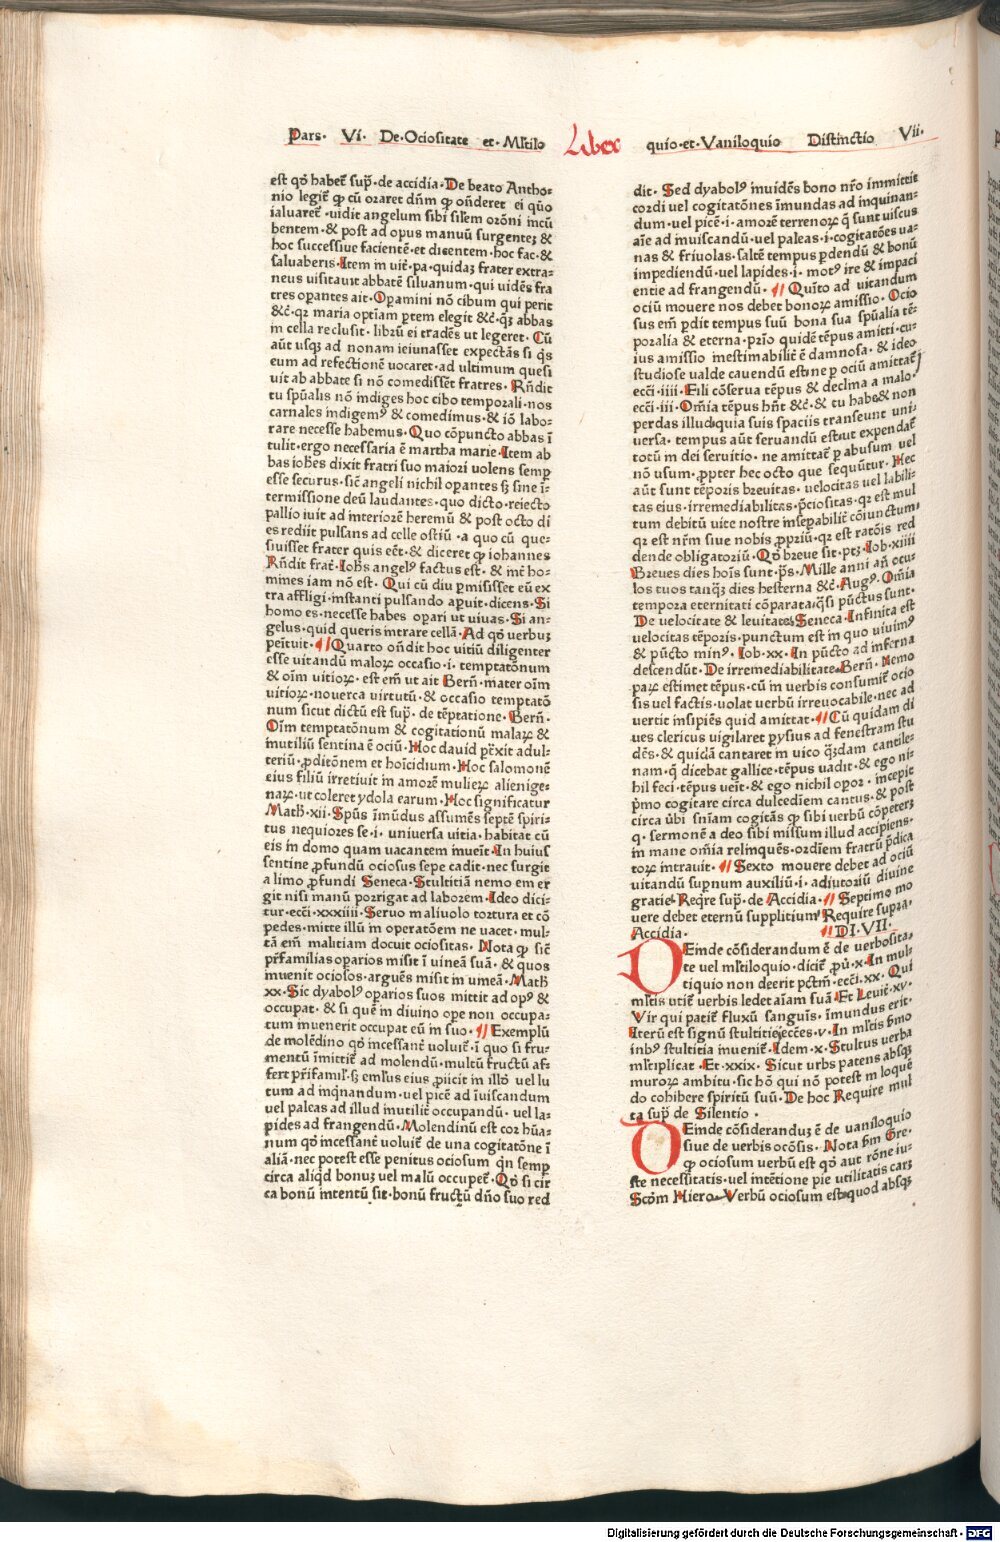 Pars· VI· De·Ociositate et·Mltilo Liber quio·et·Vaniloquio Distinctio VII·
est qđ habet̄ supͥ·de accidia·De beato Antho⸗
nio legit̄ qꝫ cū oraret dn̄m ꝙ on̄deret ei quo
saluaret̄·uidit angelum sibi silem orōni incū
bentem·& post ad opus manuū surgenteʒ &
hoc successiue facientē·et dicentem·hoc fac·&
saluaberis·Item in uit̄·pa·quidaʒ frater extra⸗
neus uisitauit abbatē siluanum·qui uidēs fra
tres oꝑantes ait·Oꝑamini nō cibum qui perit
&c̄·qꝛ maria optīam ꝑtem elegit &c̄·qʒ abbas
in cella reclusit·librū ei tradēs ut legeret·Cū
aūt usqʒ ad nonam ieiunasset expectās si qͥs
eum ad refectionē uocaret·ad ultimum quesi
uit ab abbate si nō comedissēt fratres·Rn̄dit
tu spūalis nō indiges hoc cibo temporali·nos
carnales indigemꝰ & comedimus·& iō labo⸗
rare necesse habemus·Quo cōpuncto abbas ī
tulit·ergo necessaria ē martha marie·Item ab
bas ioh̄es dixit fratri suo maiori uolens semꝑ
esse securus·sic̄ angeli nichil oꝑantes sꝫ sine ī⸗
termissione deū laudantes·quo dicto·reiecto
pallio iuit ad interiorē heremū & post octo di
es rediit pulsans ad celle ostiū·a quo cū que⸗
siuisset frater quis eēt·& diceret ꝙ iohannes
Rn̄dit frat̄·Ioh̄s angelꝰ factus est·& int̄ ho⸗
mines iam nō est·Qui cū diu ꝑmisisset eū ex
tra affligi·instanti pulsando aꝑuit·dicens·Si
homo es·necesse habes opari ut uiuas·Si an⸗
gelus·quid queris intrare cellā·Ad qđ uerbuʒ
penituit·¶Quarto on̄dit hoc uitiū diligenter
esse uitandū maloꝝ occasio·i·temptatōnum
& oīm uitioꝝ·est em̄ ut ait Bern̄·mater oīm
uitioꝝ·nouerca uirtutū·& occasio temptatō
num sicut dictū est supͥ·de tēptatione·Bern̄·
Oīm temptatōnum & cogitationū malaꝝ &
inutiliū sentina ē ociū·Hoc dauid ꝑtxit adul⸗
teriū·ꝓditōnem et hoīcidium·Hoc salomonē
eius filiū irretiuit in amorē mulieꝝ alienige⸗
naꝝ·ut coleret ydola earum·Hoc significatur
Math̄·xii·Spūs īmūdus assumēs septē spiri⸗
tus nequiores se·i·uniuersa uitia·habitat cū
eis in domo quam uacantem īuenit·In huius
sentine ꝓfundū ociosus sepe cadit·nec surgit
a limo ꝓfundi Seneca·Stultitiā nemo em er
git nisi manū porrigat ad laborem·Ideo dici⸗
tur·ecc̄i·xxxiiii·Seruo maliuolo tortura et cō
pedes·mitte illū in operatōem ne uacet·mul⸗
tā em̄ malitiam docuit ociositas·Nota ꝙ sic̄
pr̄familias oparios misit ī uineā suā·& quos
inuenit ociosos·arguēs misit in uineā·Math̄
xx·Sic dyabolꝰ oparios suos mittit ad opꝰ &
occupat·& si quē in diuino ope non occupa⸗
tum inuenerit occupat eū in suo·¶Exemplū
de molēdino qđ incessant̄ voluit̄·ī quo si fru⸗
mentū īmittit̄ ad molendū·multū fructū af⸗
fert pr̄famil̄·sꝫ emulus eius ꝓiicit in illo uel lu
tum ad inqͥnandum·uel picē ad īuiscandum
uel paleas ad illud inutilit̄ occupandū·uel la⸗
pides ad frangendū·Molendinū est cor hūa⸗
num qđ incessant̄ voluit̄ de una cogitatōne ī
aliā·nec potest esse penitus ociosum qͥn semꝑ
circa aliqͥd bonuʒ uel malū occupet̄·Qđ si cir
ca bonū intentū sit·bonū fructū dn̄o suo red
dit·Sed dyabolꝰ inuidēs bono nr̄o immittit
cordi uel cogitatōnes īmundas ad inquinan⸗
dum·uel picē·i·amorē terrenoꝝ q̄ sunt uiscus
aīe ad inuiscandū·uel paleas·i·cogitatōes ua⸗
nas & friuolas·saltē tempus ꝑdendū & bonū
impediendū·uel lapides·i·motꝰ ire & impaci
entie ad frangendū·¶Quīto ad uitandum
ociū mouere nos debet bonoꝝ amissio·Ocio
sus em̄ ꝑdit tempus suū bona sua spūalia tē⸗
poralia & eterna·prīo quidē tēpus amitti·cu⸗
ius amissio inestimabilit̄ ē damnosa·& ideo
studiose ualde cauendū est ne ꝑ ociū amittat̄
ecc̄i·iiii·Fili cōserua tēpus & declina a malo·
ecc̄i·iii·Om̄ia tēpus hn̄t &c̄·& tu habes & non
perdas illud·quia suis spaciis transeunt uni⸗
uersa·tempus aūt seruandū est·ut expendat̄
totū in dei seruitio·ne amittat̄ ꝑ abusum uel
nō usum·ꝓpter hec octo que sequūtur·Hec
aūt sunt tēporis breuitas·uelocitas uel labili⸗
tas eius·irremediabilitas·p̄ciositas·qꝛ est mul
tum debitū uite nostre inseꝑabilit̄ cōiunctum·
qꝛ est nr̄m siue nobis ꝓpriū·qꝛ est ratōis red
dende obligatoriū·Qđ breue sit·ptꝫ·Iob·xiiii
Breues dies hoīs sunt·ps̄·Mille anni an̄ ocu⸗
los tuos tanqͣʒ dies hesterna &c̄·Augꝰ·Om̄ia
tempora eternitati cōparata·qͣsi pūctus sunt·
De uelocitate & leuitate·Seneca·Infinita est
uelocitas tēporis·punctum est in quo uiuimꝰ
& pūcto minꝰ·Iob·xx·In pūcto ad inferna
descendūt·De irremediabilitate·Bern̄·Nemo
paꝝ estimet tēpus·cū in uerbis consumit̄ ocio
sis uel factis·uolat uerbū irreuocabile·nec ad
uertit insipiēs quid amittat·¶Cū quidam di
ues clericus uigilaret ꝑysius ad fenestram stu
dēs·& quidā cantaret in uico qͣʒdam cantile⸗
nam·q̄ dicebat gallice·tēpus uadit·& ego ni⸗
hil feci·tēpus ueit̄·& ego nichil opor·incepit
pͥmo cogitare circa dulcedīem cantus·& post
circa ūbi sn̄iam cogitās ꝙ sibi uerbū cōpeterʒ
q·sermonē a deo sibi missum illud accipiens·
in mane om̄ia relinquēs·ordīem fratrū p̄dica
toꝝ intrauit·¶Sexto mouere debet ad ociū
uitandū suꝑnum auxiliū·i·adiutoriū diuine
gratie·Reqͥre supͥ·de Accidia·¶Septimo mo
uere debet eternū supplitium Require supra·
Accidia· ¶DI·VII·
DEinde cōsiderandum ē de uerbosita⸗
te uel mltiloquio·dicit̄ ꝓū·x·In mul
tiquio non deerit pctm̄·ecc̄i·xx·Qui
mltis utit̄ uerbis ledet aīam suā·Et Leuit̄·xv·
Vir qui patit̄ fluxū sanguīs·īmundus erit·
Iterū est signū stultitie·ecces·v·In mltis s̄mo
inbꝰ stultitia inuenit̄·Idem·x·Stultus uerba
mltiplicat·Et·xxix·Sicut urbs patens absqʒ
muroꝝ ambitu·sic hō qui nō potest in loque
do cohibere spiritū suū·De hoc Require mul
ta supͥ de Silentio·
DEinde cōsideranduʒ ē de uaniloquio
siue de uerbis ocōsis·Nota s̄m Gre·
ꝙ ociosum uerbū est qđ aut rōne iu⸗
ste necessitatis·uel intētione pie utilitatis carʒ
Scd̄m Hiero·Verbū ociosum est quod absqʒ